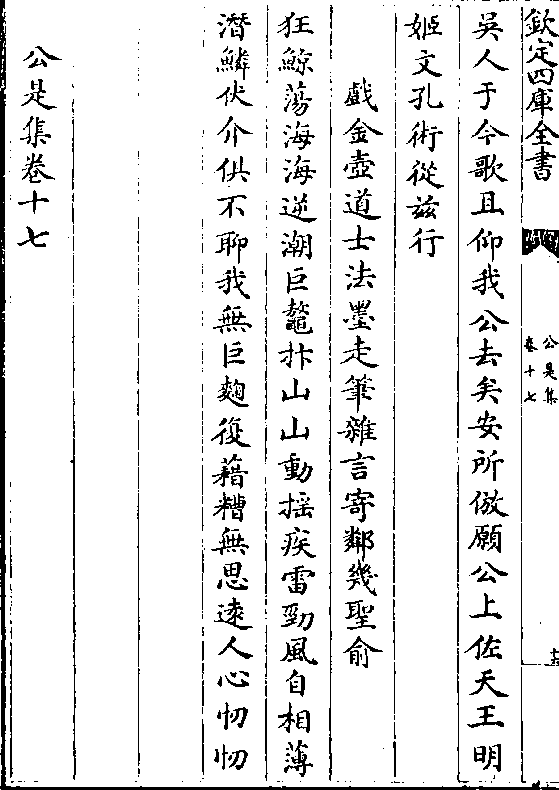 欽定四庫全書
公是集
卷十七
吳人于今歌且仰我公去矣安所倣願公上佐天王明
姬文孔術從兹行
戲金壺道士法墨走筆雜言寄鄰幾聖俞
狂鯨蕩海海逆潮巨鼇抃山山動揺疾雷勁風自相薄
潛鱗伏介俱不聊我無巨麴復藉糟無思遠人心忉忉
公是集卷十七